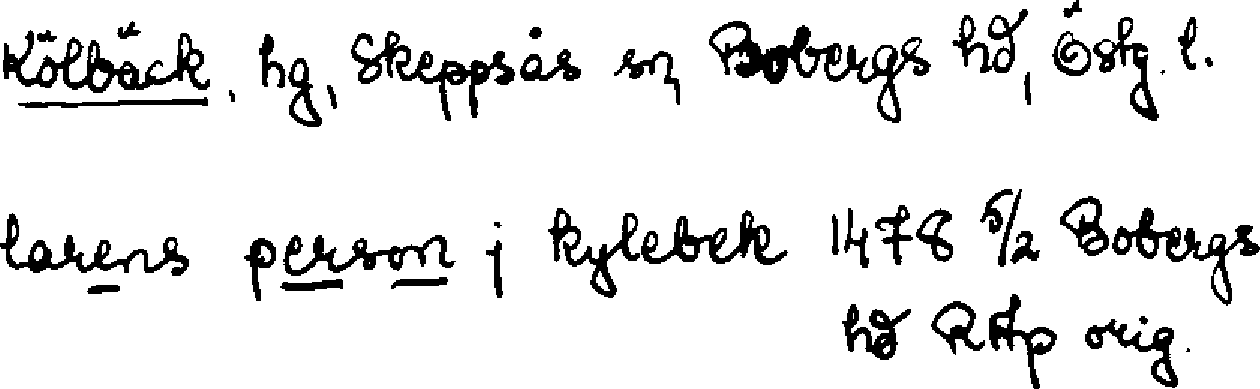 Kölbäck, hg, Skeppsås sn, Bobergs hd, Östg. l.
larens person j kylebek 1478 5/2 Bobergs
hd RAp orig.